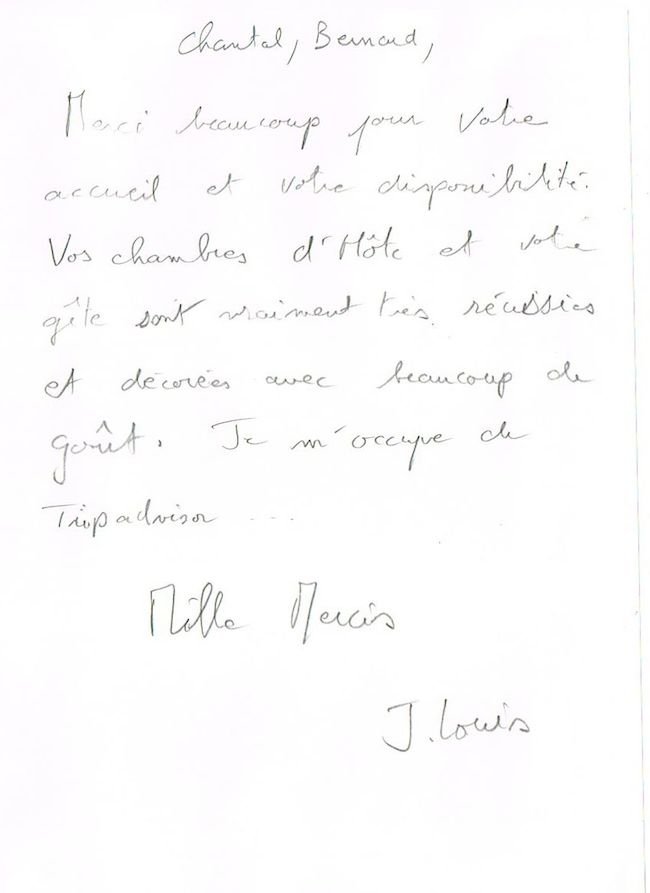 Chantal, Bernard,
Merci beaucoup pour votre
accueil et votre disponibilité.
Vos chambres d'Hôte et votre
gîte sont vraiment très réussies
et décorées avec beaucoup de
goût. Je m'occupe de
Tripadvisor ...
Mille Mercis
J. Louis